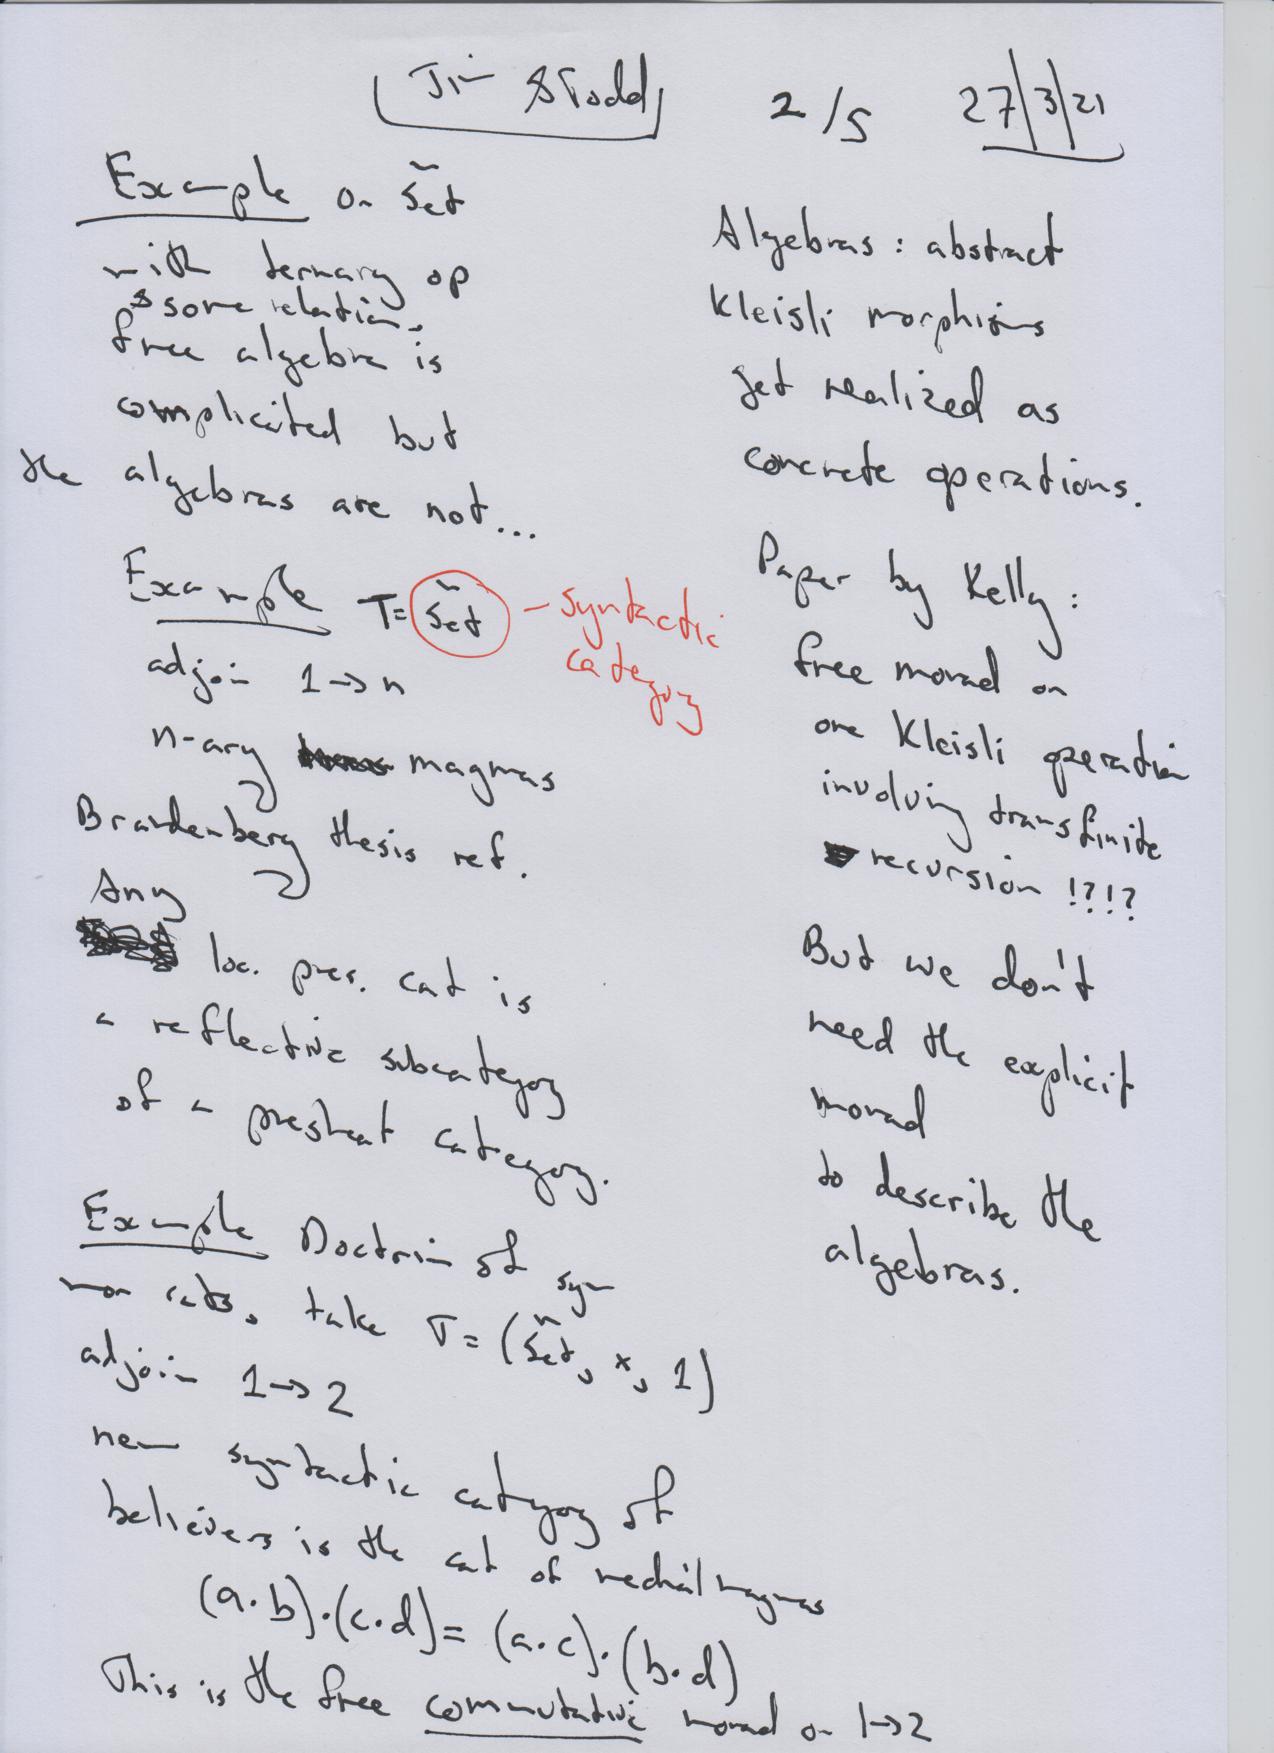 Jim & Todd 2/5 27/3/21
Example on S̃et
with ternary op
& some relation.
free algebra is
complicited but
the algebras are not...
Example T = S̃et - syntactic
category
adjoin 1→n
n-ary magmas
Brandenberg thesis ref.
Any
loc. pres. cat is
a reflective subcategory
of a presheat category.
Example Doctrin of sym
mon cats, take T = (S̃et, ×, 1)
adjoin 1→2
new syntactic category of
believers is the cat of medial magmas
(a·b)·(c·d) = (a·c)·(b·d)
This is the free commutative monad on 1→2
Algebras: abstract
Kleisli morphisms
get realized as
concrete operations.
Paper by Kelly:
free monad on
one Kleisli operation
involving transfinite
recursion !?!?
But we don't
need the explicit
monad
to describe the
algebras.